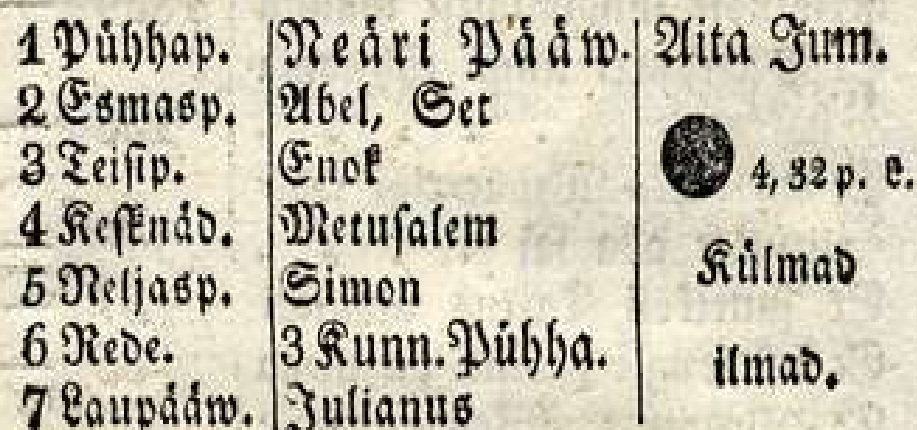 1 Pühhap. Neäri Pääw. Aita Jum.
2 Esmasp. Abel, Set
3 Teisip. Enok 4, 32 p. l.
4 Kesknäd. Metusalem
Külmad
5 Neljasp. Simon
6 Rede. 3 Kunn. Pühha.
ilmad.
7 Laupääw. Julianus